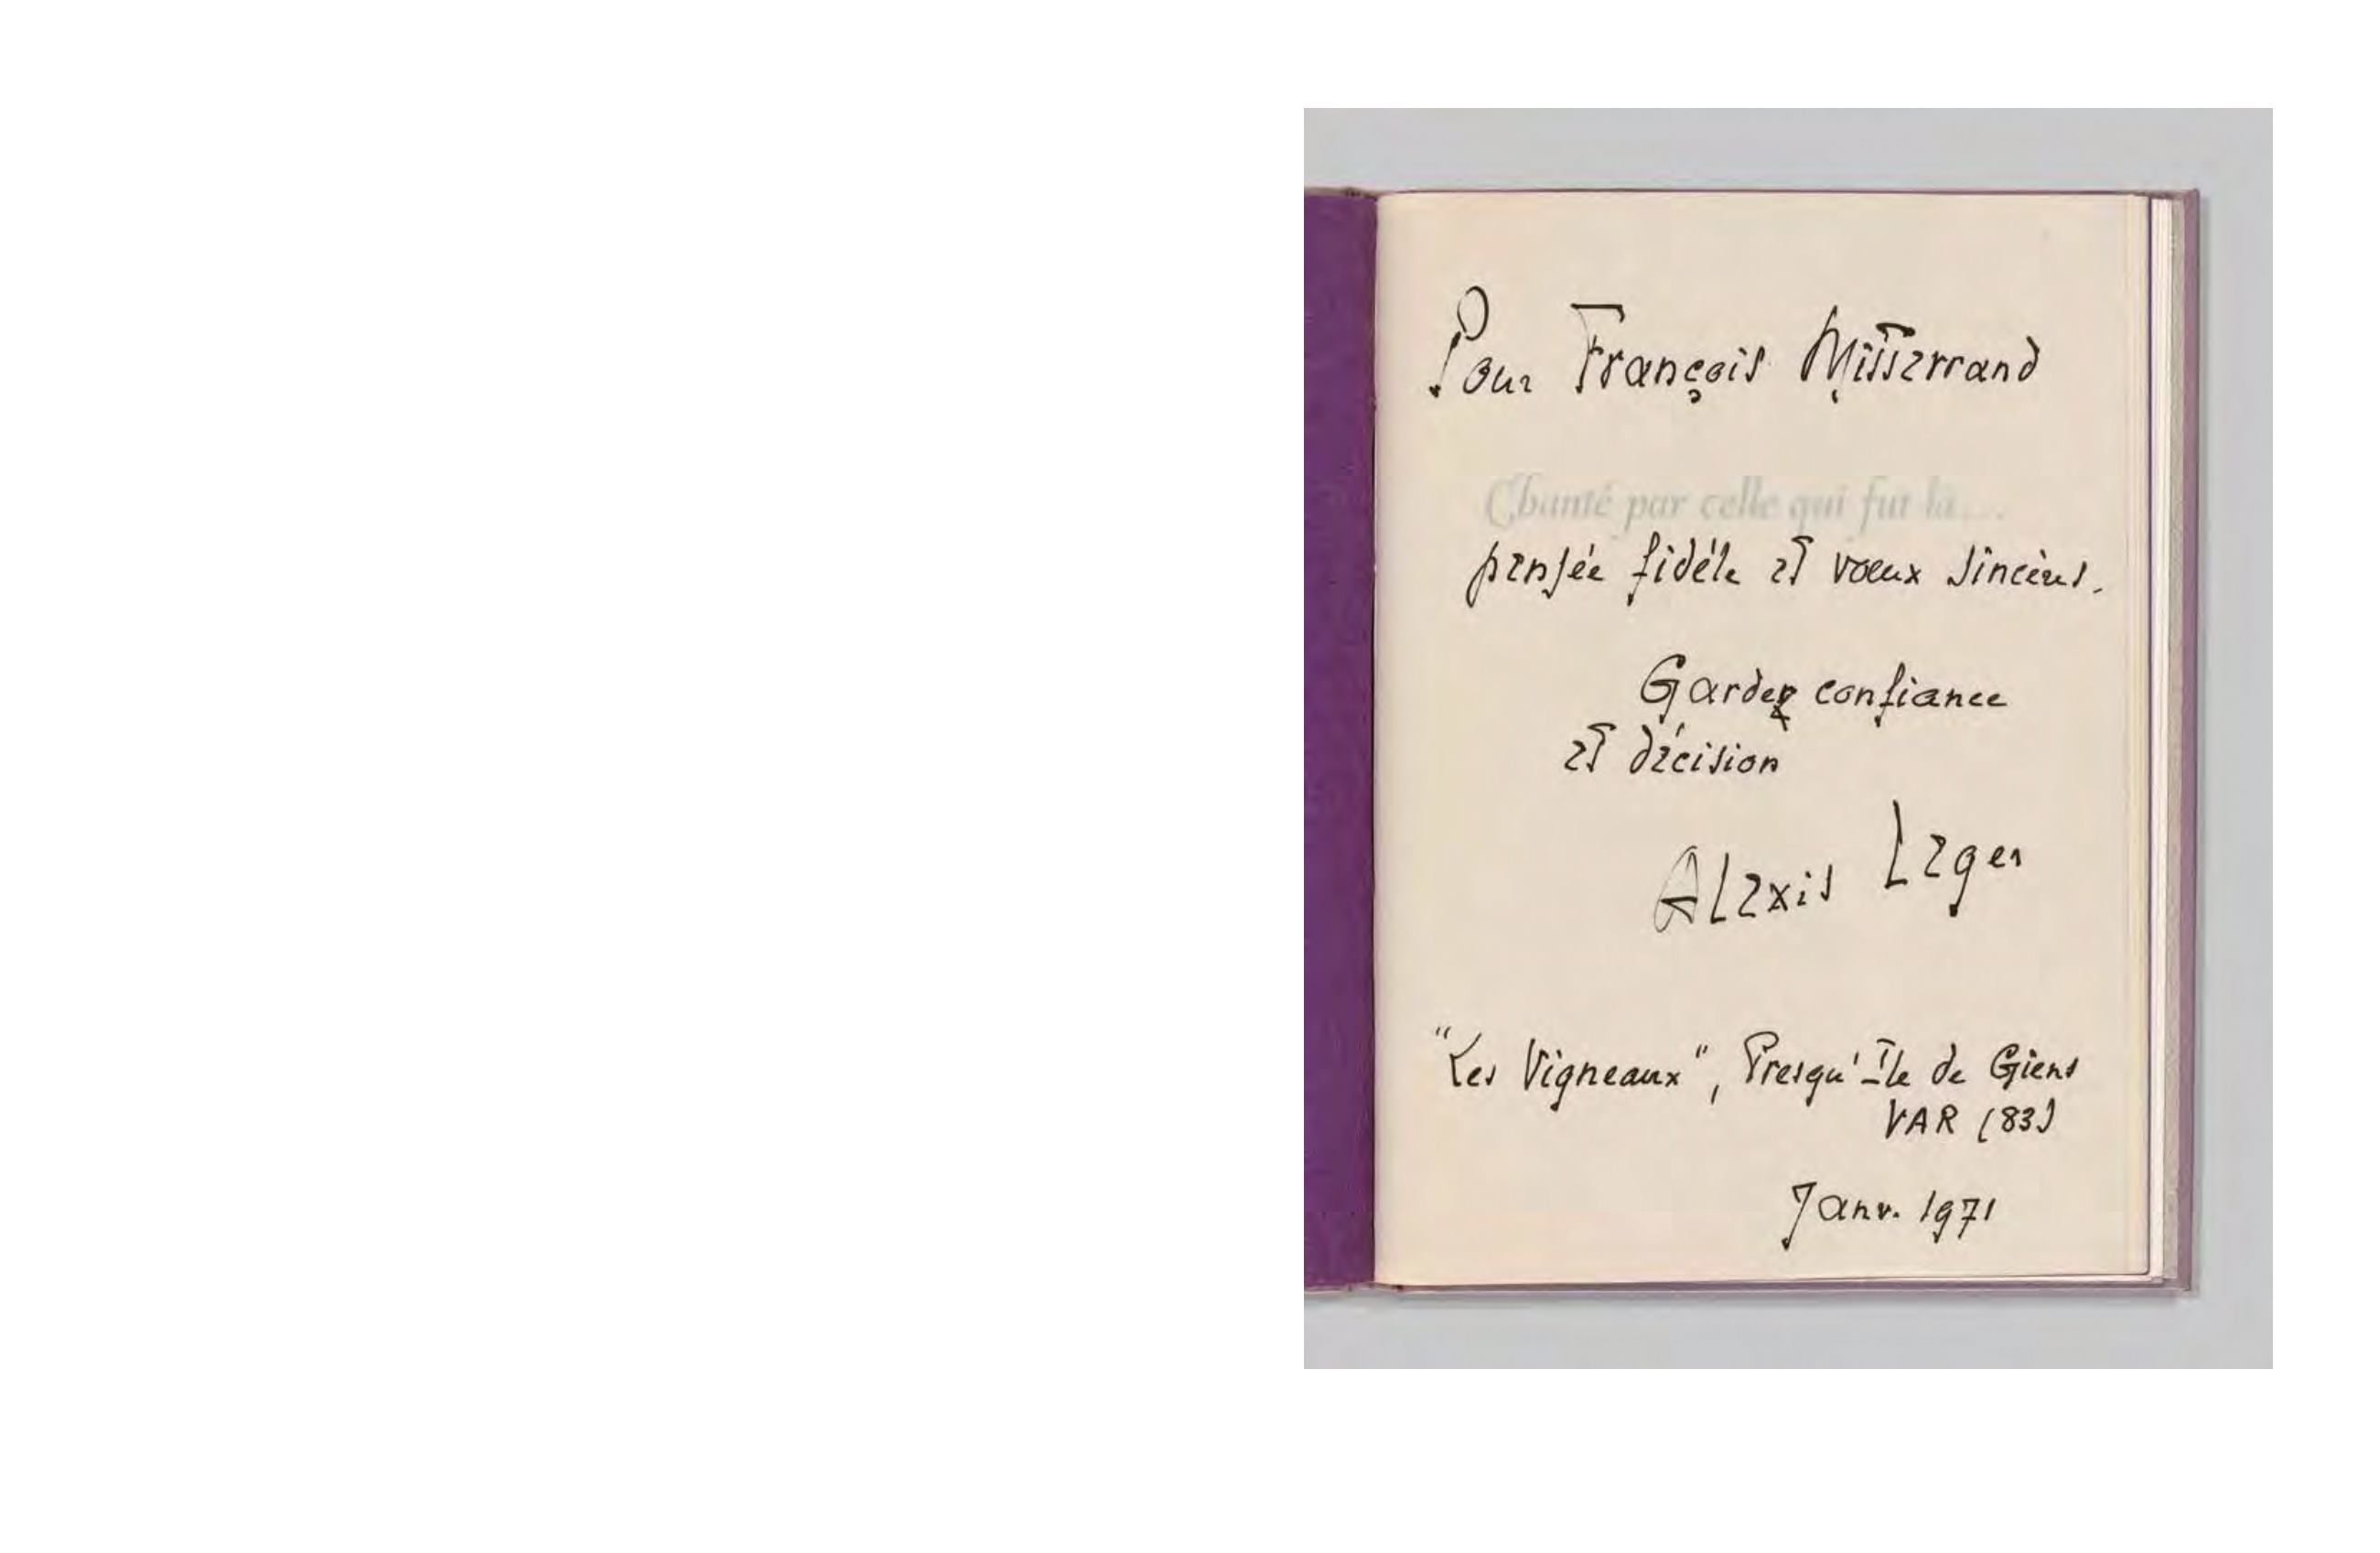 Pour François Mitterrand
Chanté par celle qui fut là....
pensée fidèle et vœux sincères.
Gardez confiance
et décision
Alexis Leger
"Les Vigneaux", Presqu'Île de Giens
VAR (83)
Janv. 1971